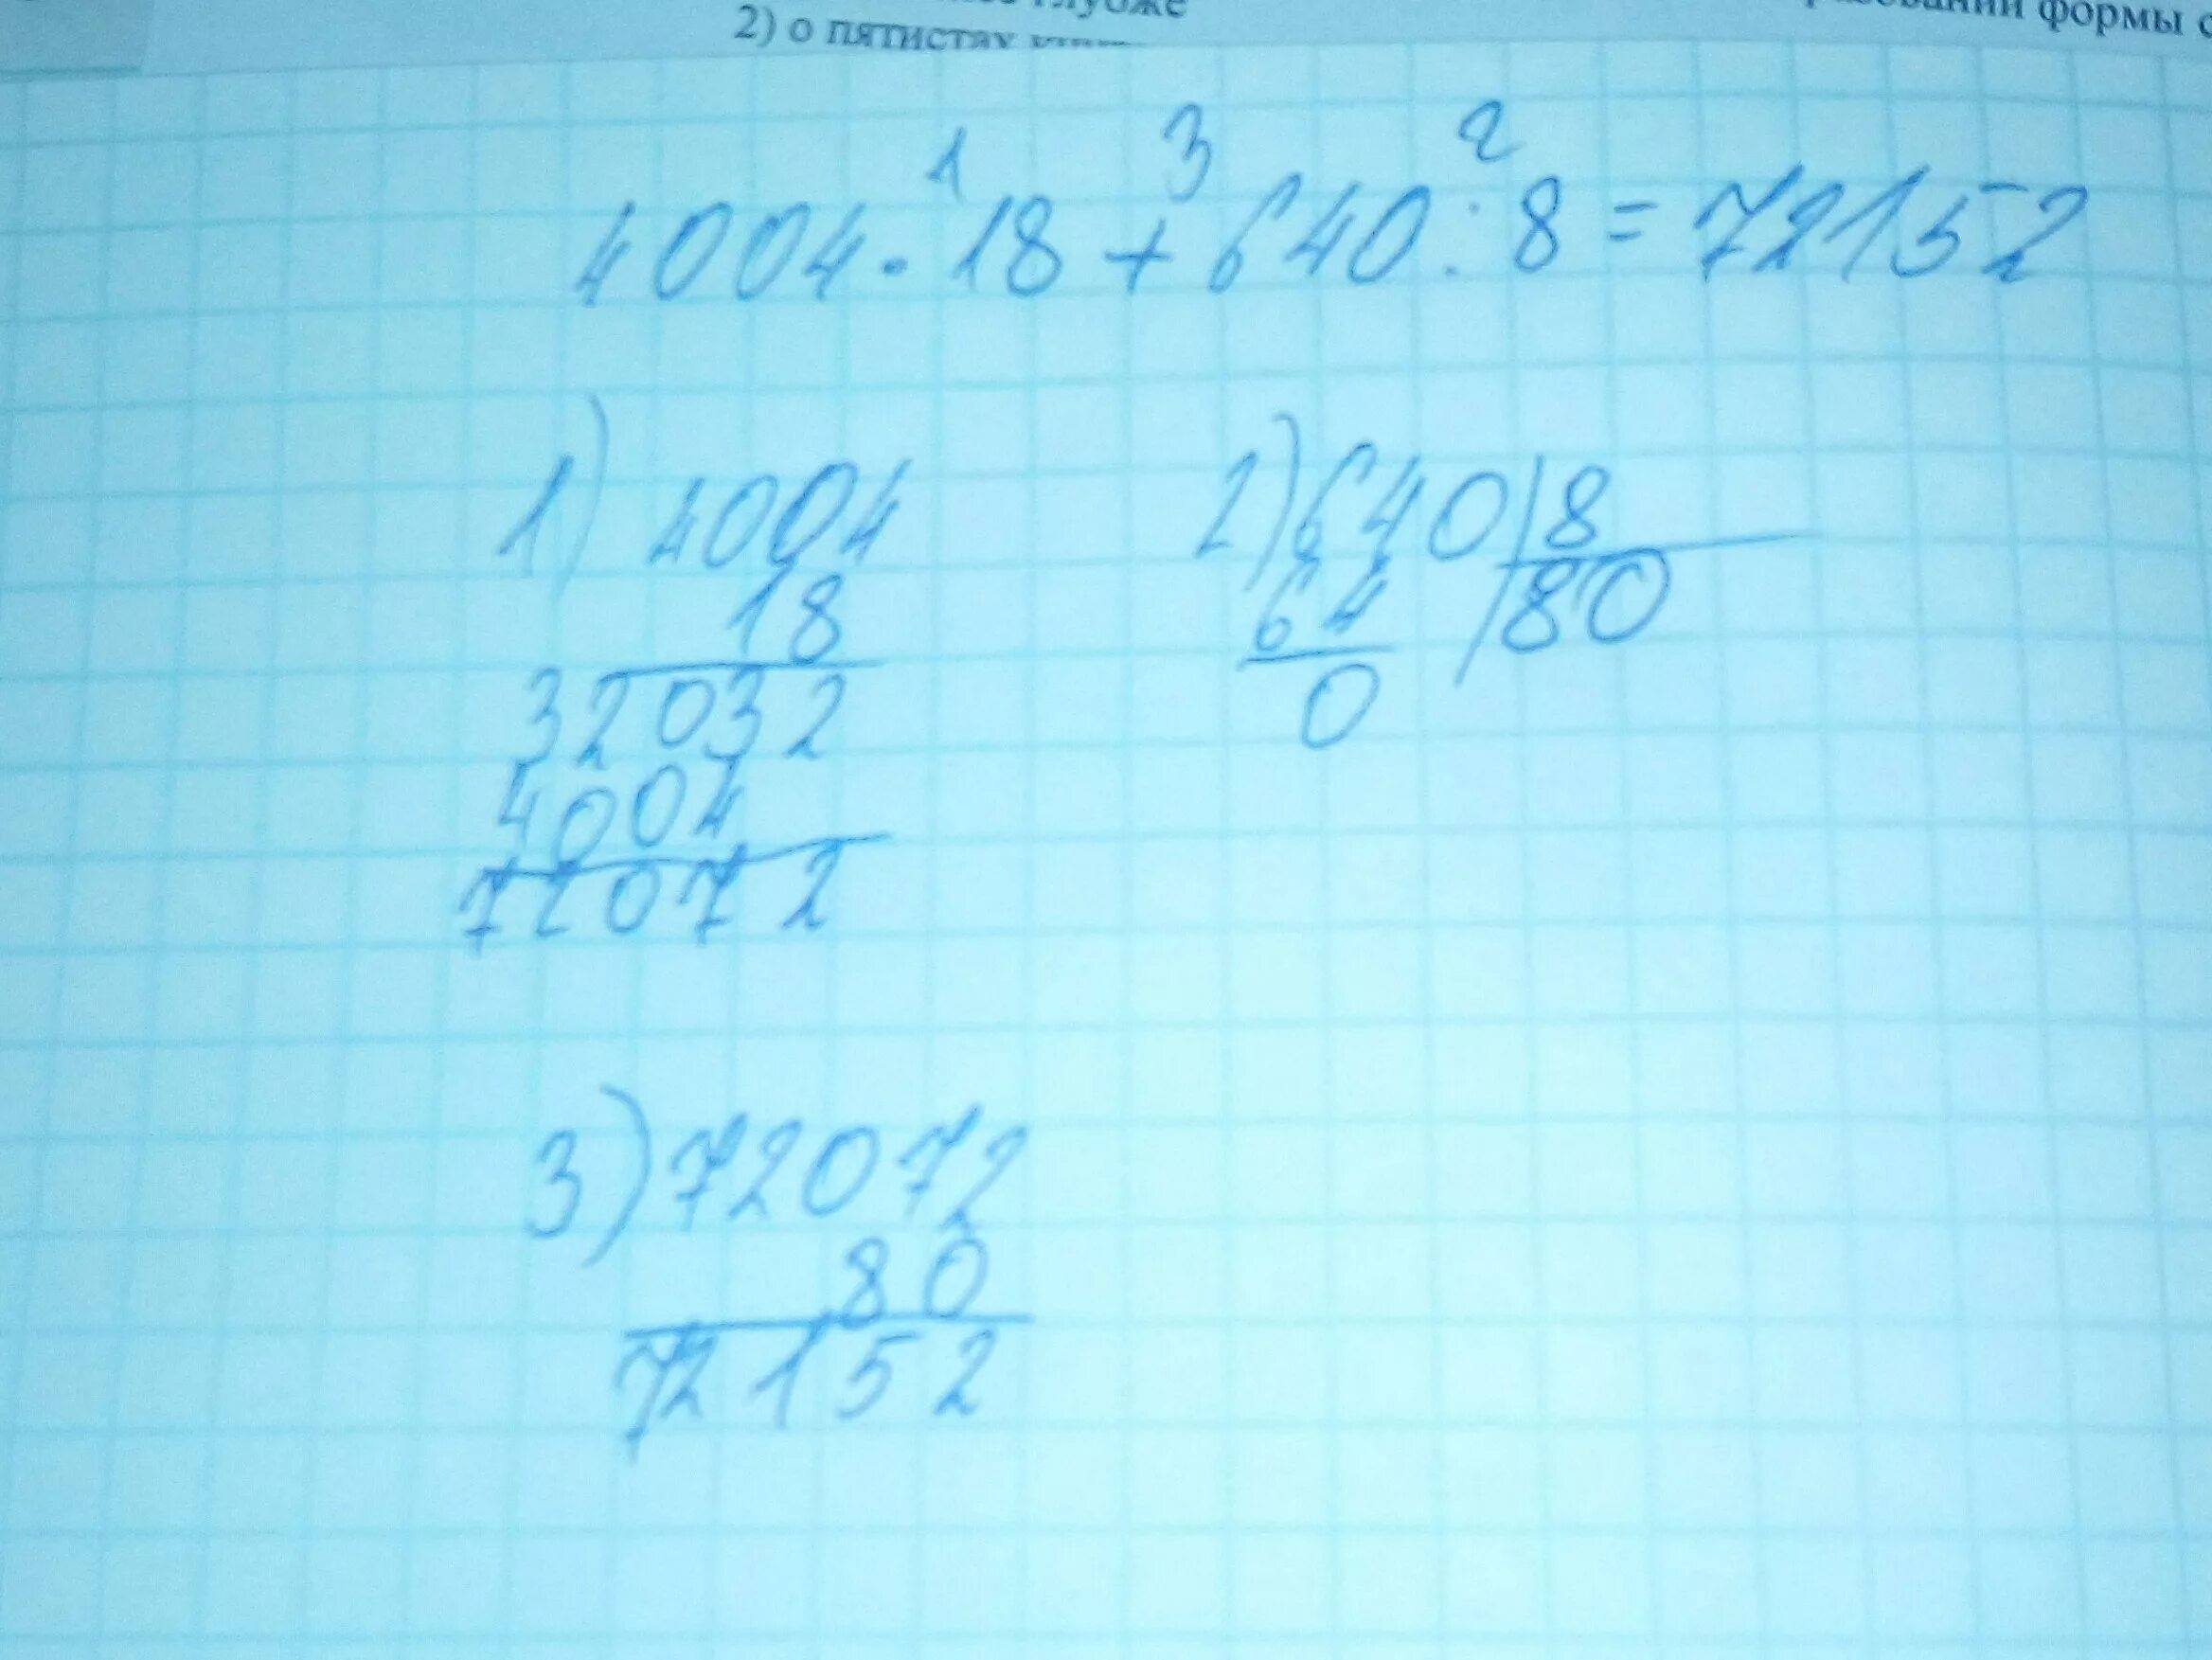 глубже
2) о пятистах
формы с
1 3 2
4004 · 18 + 640 : 8 = 72152
1) 4004
18
32032
4004
72072
2) 640 | 8
64 | 80
0
3) 72072
80
72152